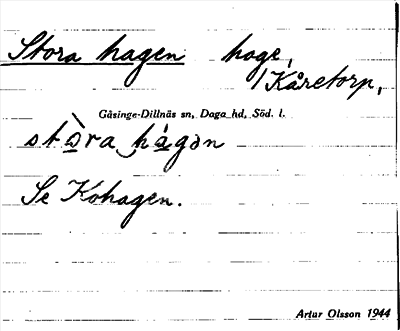 Stora hagen hage,
/ Kåretorp,
Gåsinge-Dillnäs sn, Daga hd, Söd. l.
stò̲ra há̲gən
Se Kohagen.
Artur Olsson 1944